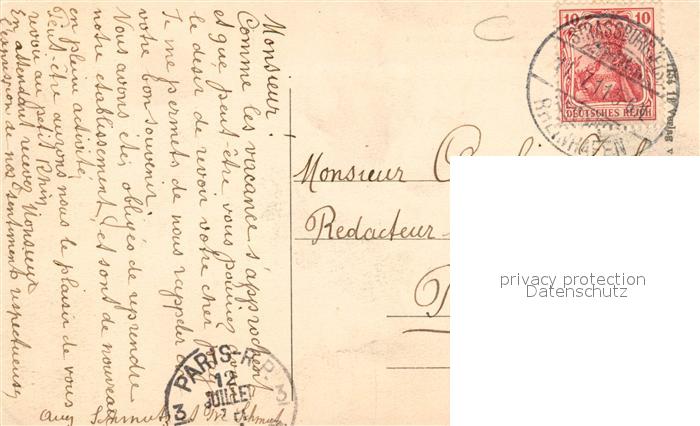 Monsieur!
Comme les vacances s'approchent
et que peut-être vous pourriez avoir
le desir de revoir votre cher
Je me permets de nous rappeler à
votre bon souvenir.
Nous avons étés obligés de reprendre
notre établissement, et sont de nouveau
en pleine activité.
Peut-être aurons nous le plaisir de vous
revoir au petit Rhin.
En attendant recevez Monsieur
l'expression de nos sentiments respectueux
Aug Schmutz
Monsieur
Redacteur
10 10
DEUTSCHES REICH
STRASSBURG
RHEINHAFEN
PARIS-R.P.
12
JUILLET
privacy protection
Datenschutz